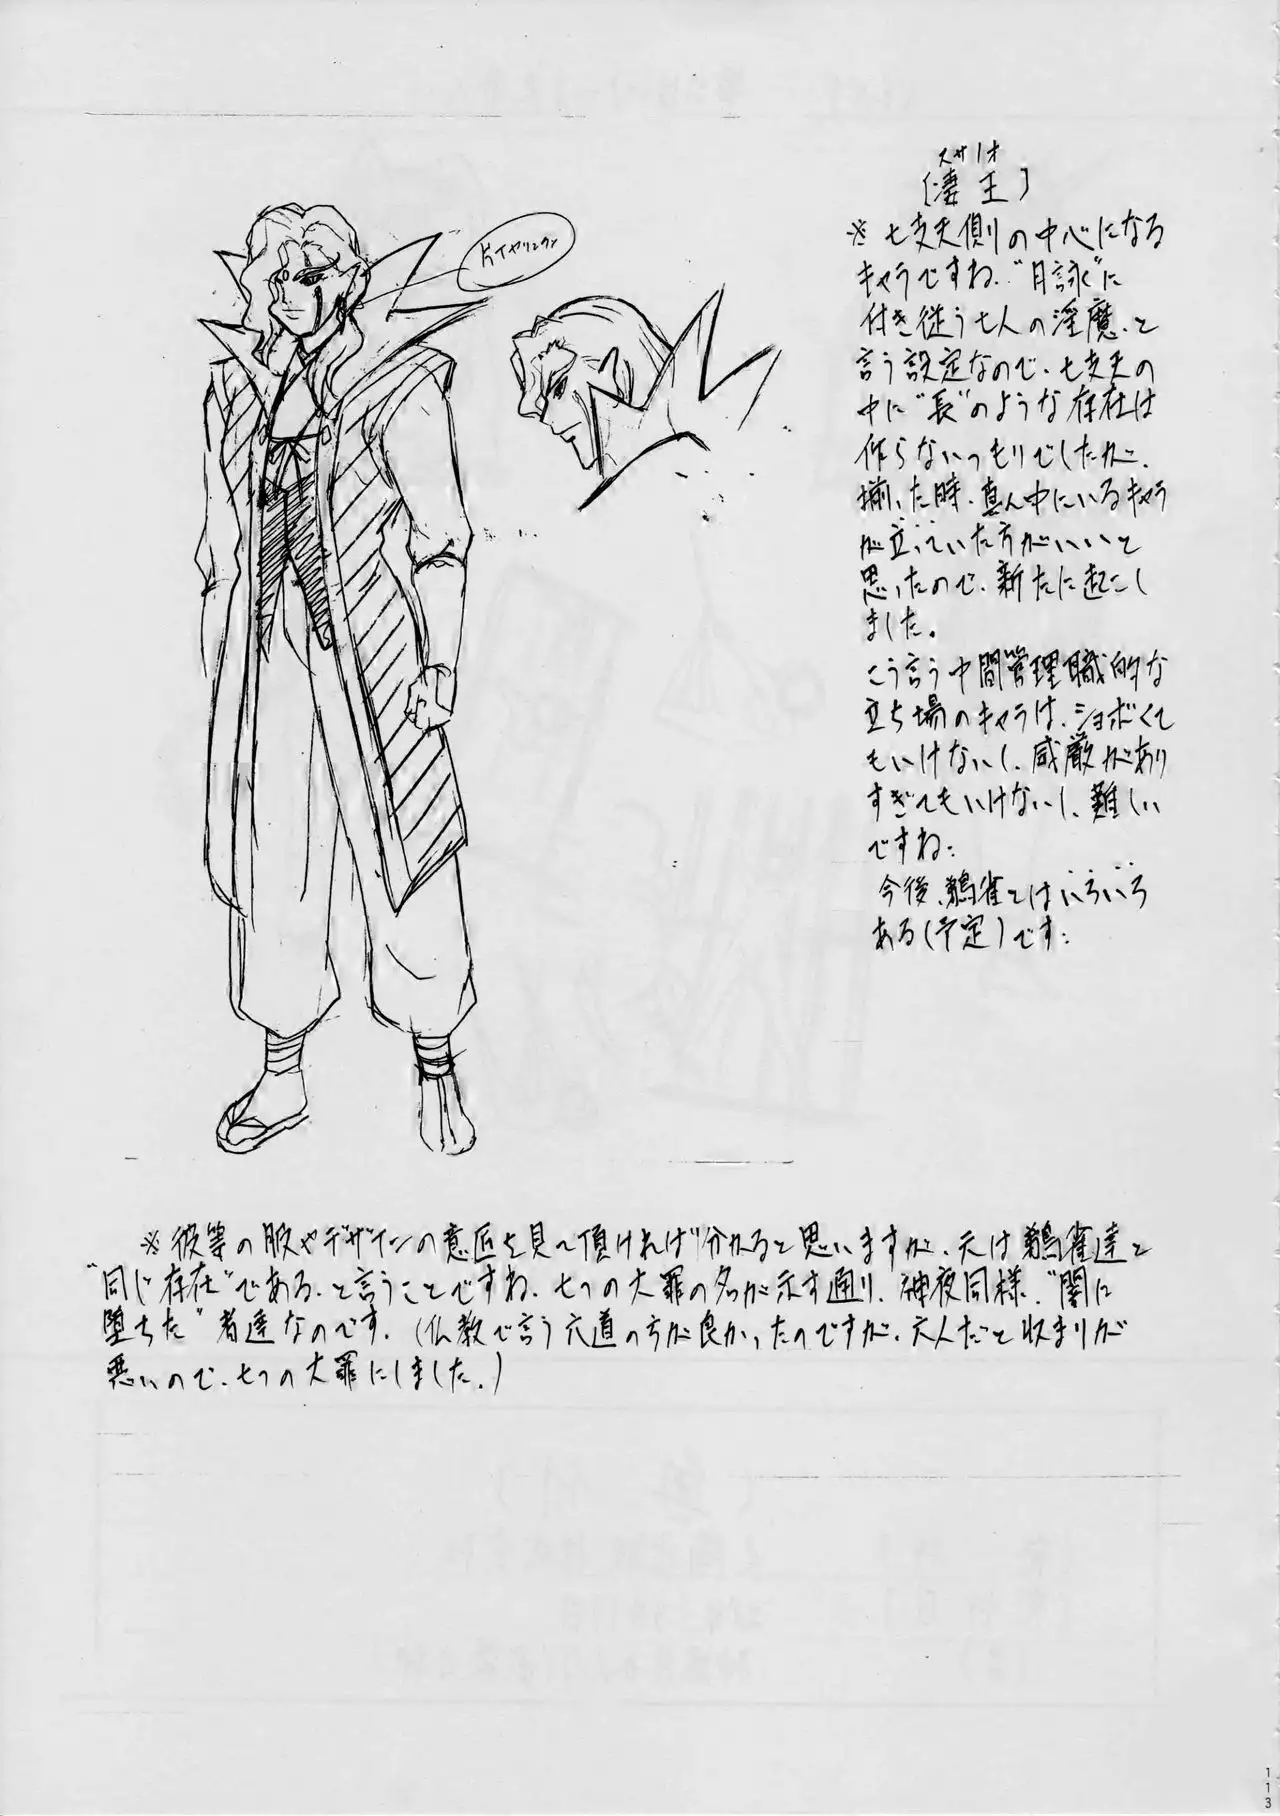 スサノオ
[凄王]
※七支天側の中心になる
キャラですね。"月詠"に
付き従う七人の淫魔、と
言う設定なので、七支天の
中に"長"のような存在は
作らないつもりでしたが、
揃った時、真ん中にいるキャラ
が立っていた方がいいと
思ったので、新たに起こし
ました。
こう言う中間管理職的な
立ち場のキャラは、ショボくて
もいけないし、威厳があり
すぎてもいけないし、難しい
ですね。
今後、鵺雀とはいろいろ
ある(予定)です。
片イヤリング
※彼等の服やデザインの意匠を見て頂ければ分かると思いますが、元は鵺雀達と
"同じ存在"である、と言うことですね。七つの大罪の名が示す通り、神夜同様、"闇に
堕ちた"者達なのです。(仏教で言う六道の方が良かったのですが、六人だと収まりが
悪いので、七つの大罪にしました。)
113